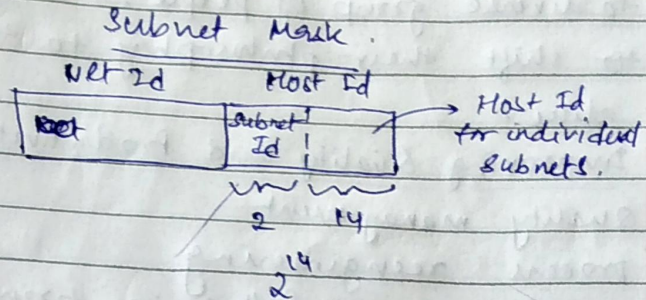 Subnet Mask.
Net Id Host Id
Subnet Id
Host Id
for individual
subnets.
2 14
2^14